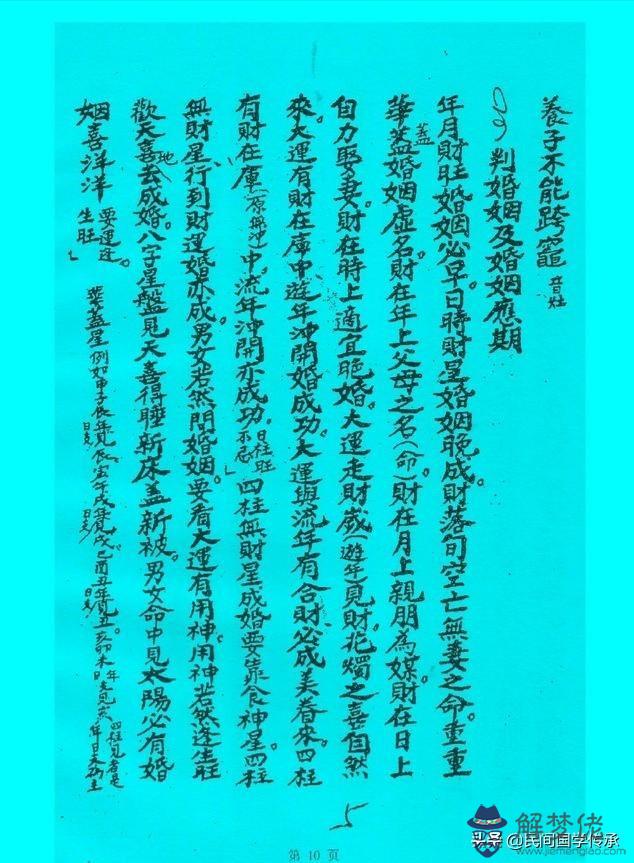 養子不能跨竈 音灶
判婚姻及婚姻應期
年月財旺婚姻必早。日時財星婚姻晚成。財落旬空亡無妻之命。重重
華蓋婚姻虛名。財在年上父母之名(命)財在月上親朋為媒。財在日上
自力娶妻。財在時上適宜晚婚。大運走財歲(遊年)見財。花燭之喜自然
來。大運有財在庫中遊年沖開婚成功。大運與流年有合財必成美眷來。四柱
有財在庫(原無沖)中。流年沖開亦成功。日柱旺不忌 四柱無財星成婚要靠食神星。四柱
無財星行到財運婚亦成。男女若然問婚姻。要看大運有用神。用神若然逢生旺
歡天喜地去成婚。八字星盤見天喜得睡新床蓋新被。男女命中見太陽必有婚
姻喜洋洋 要運逢生旺。
華蓋星例如申子辰年見辰。寅午戌年見戌。巳酉丑年見丑。亥卯未年
第 10 页
5
头条 @民间国学传承
解梦佬
www.jiemenglao.com